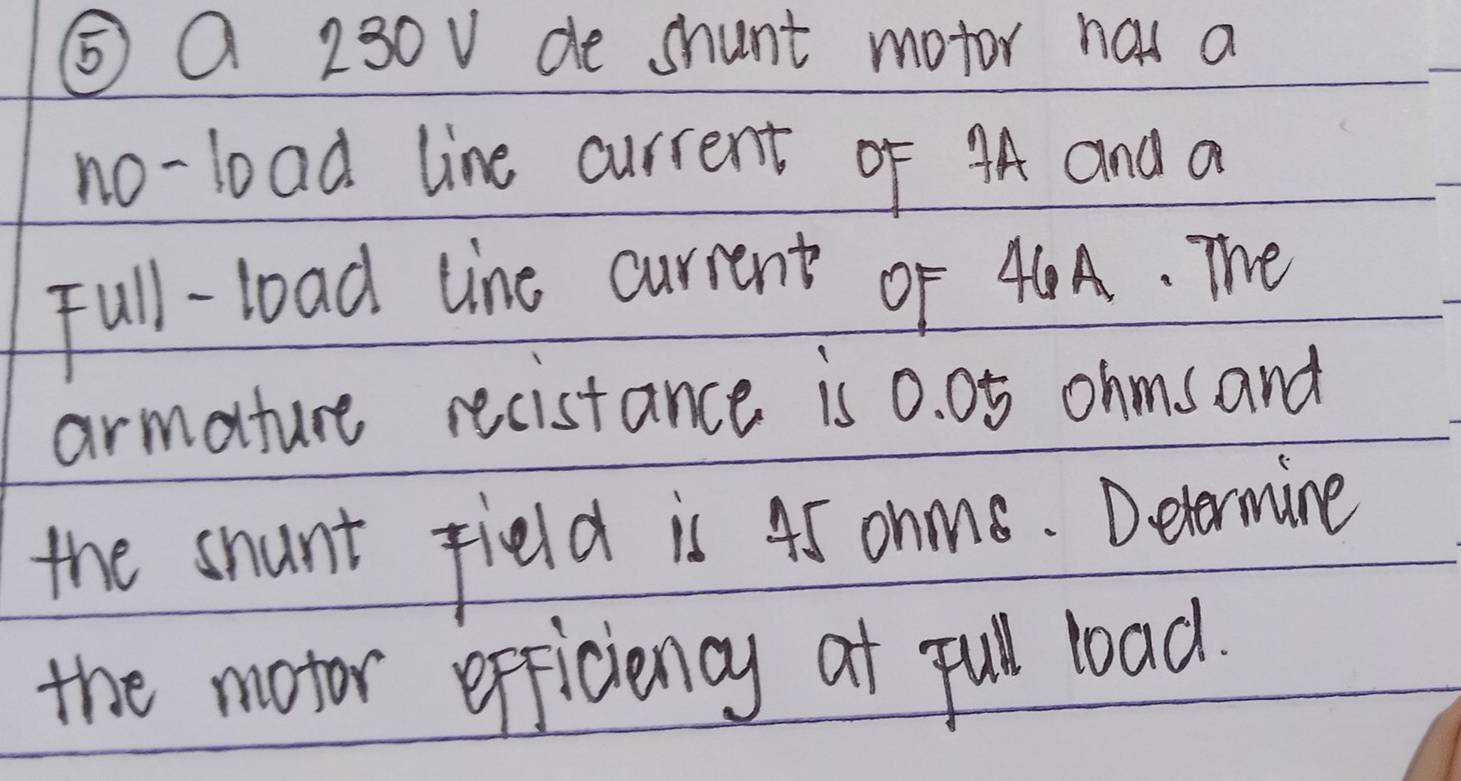 ⑤ A 230 V dc shunt motor has a
no-load line current of 7A and a
Full-load line current of 46A. The
armature recistance is 0.05 ohms and
the shunt field is 75 ohms. Determine
the motor efficiency at full load.